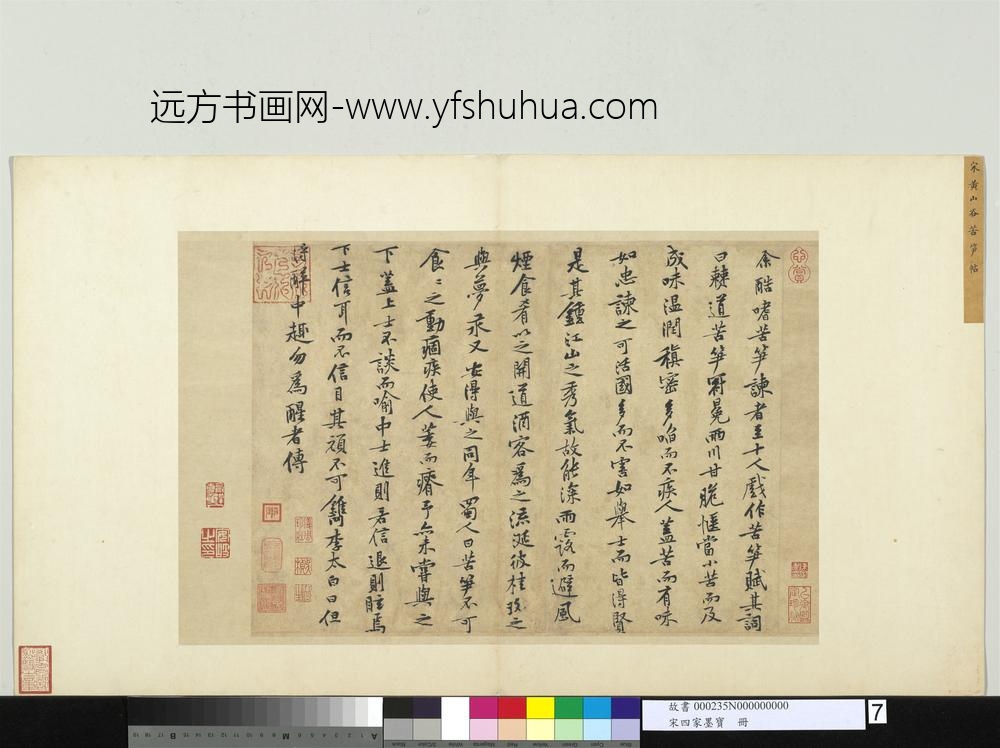 远方书画网-www.yfshuhua.com
宋黃山谷苦笋帖
余酷嗜苦笋諫者至十人戲作苦笋賦其詞
曰僰道苦笋冠冕兩川甘脆愜當小苦而及
成味温潤縝密多啗而不疾人蓋苦而有味
如忠諫之可活國多而不害如舉士而皆得賢
是其鍾江山之秀氣故能深雨露而避風
煙食肴以之開道酒客為之流涎彼桂玫之
與夢永又安得與之同年蜀人曰苦笋不可
食〻之動痼疾使人萎而瘠予亦未嘗與之
下蓋上士不談而喻中士進則若信退則眩焉
下士信耳而不信目其頑不可鐫李太白曰但
得醉中趣勿為醒者傳
故書 000235N000000000
宋四家墨寶 冊
7